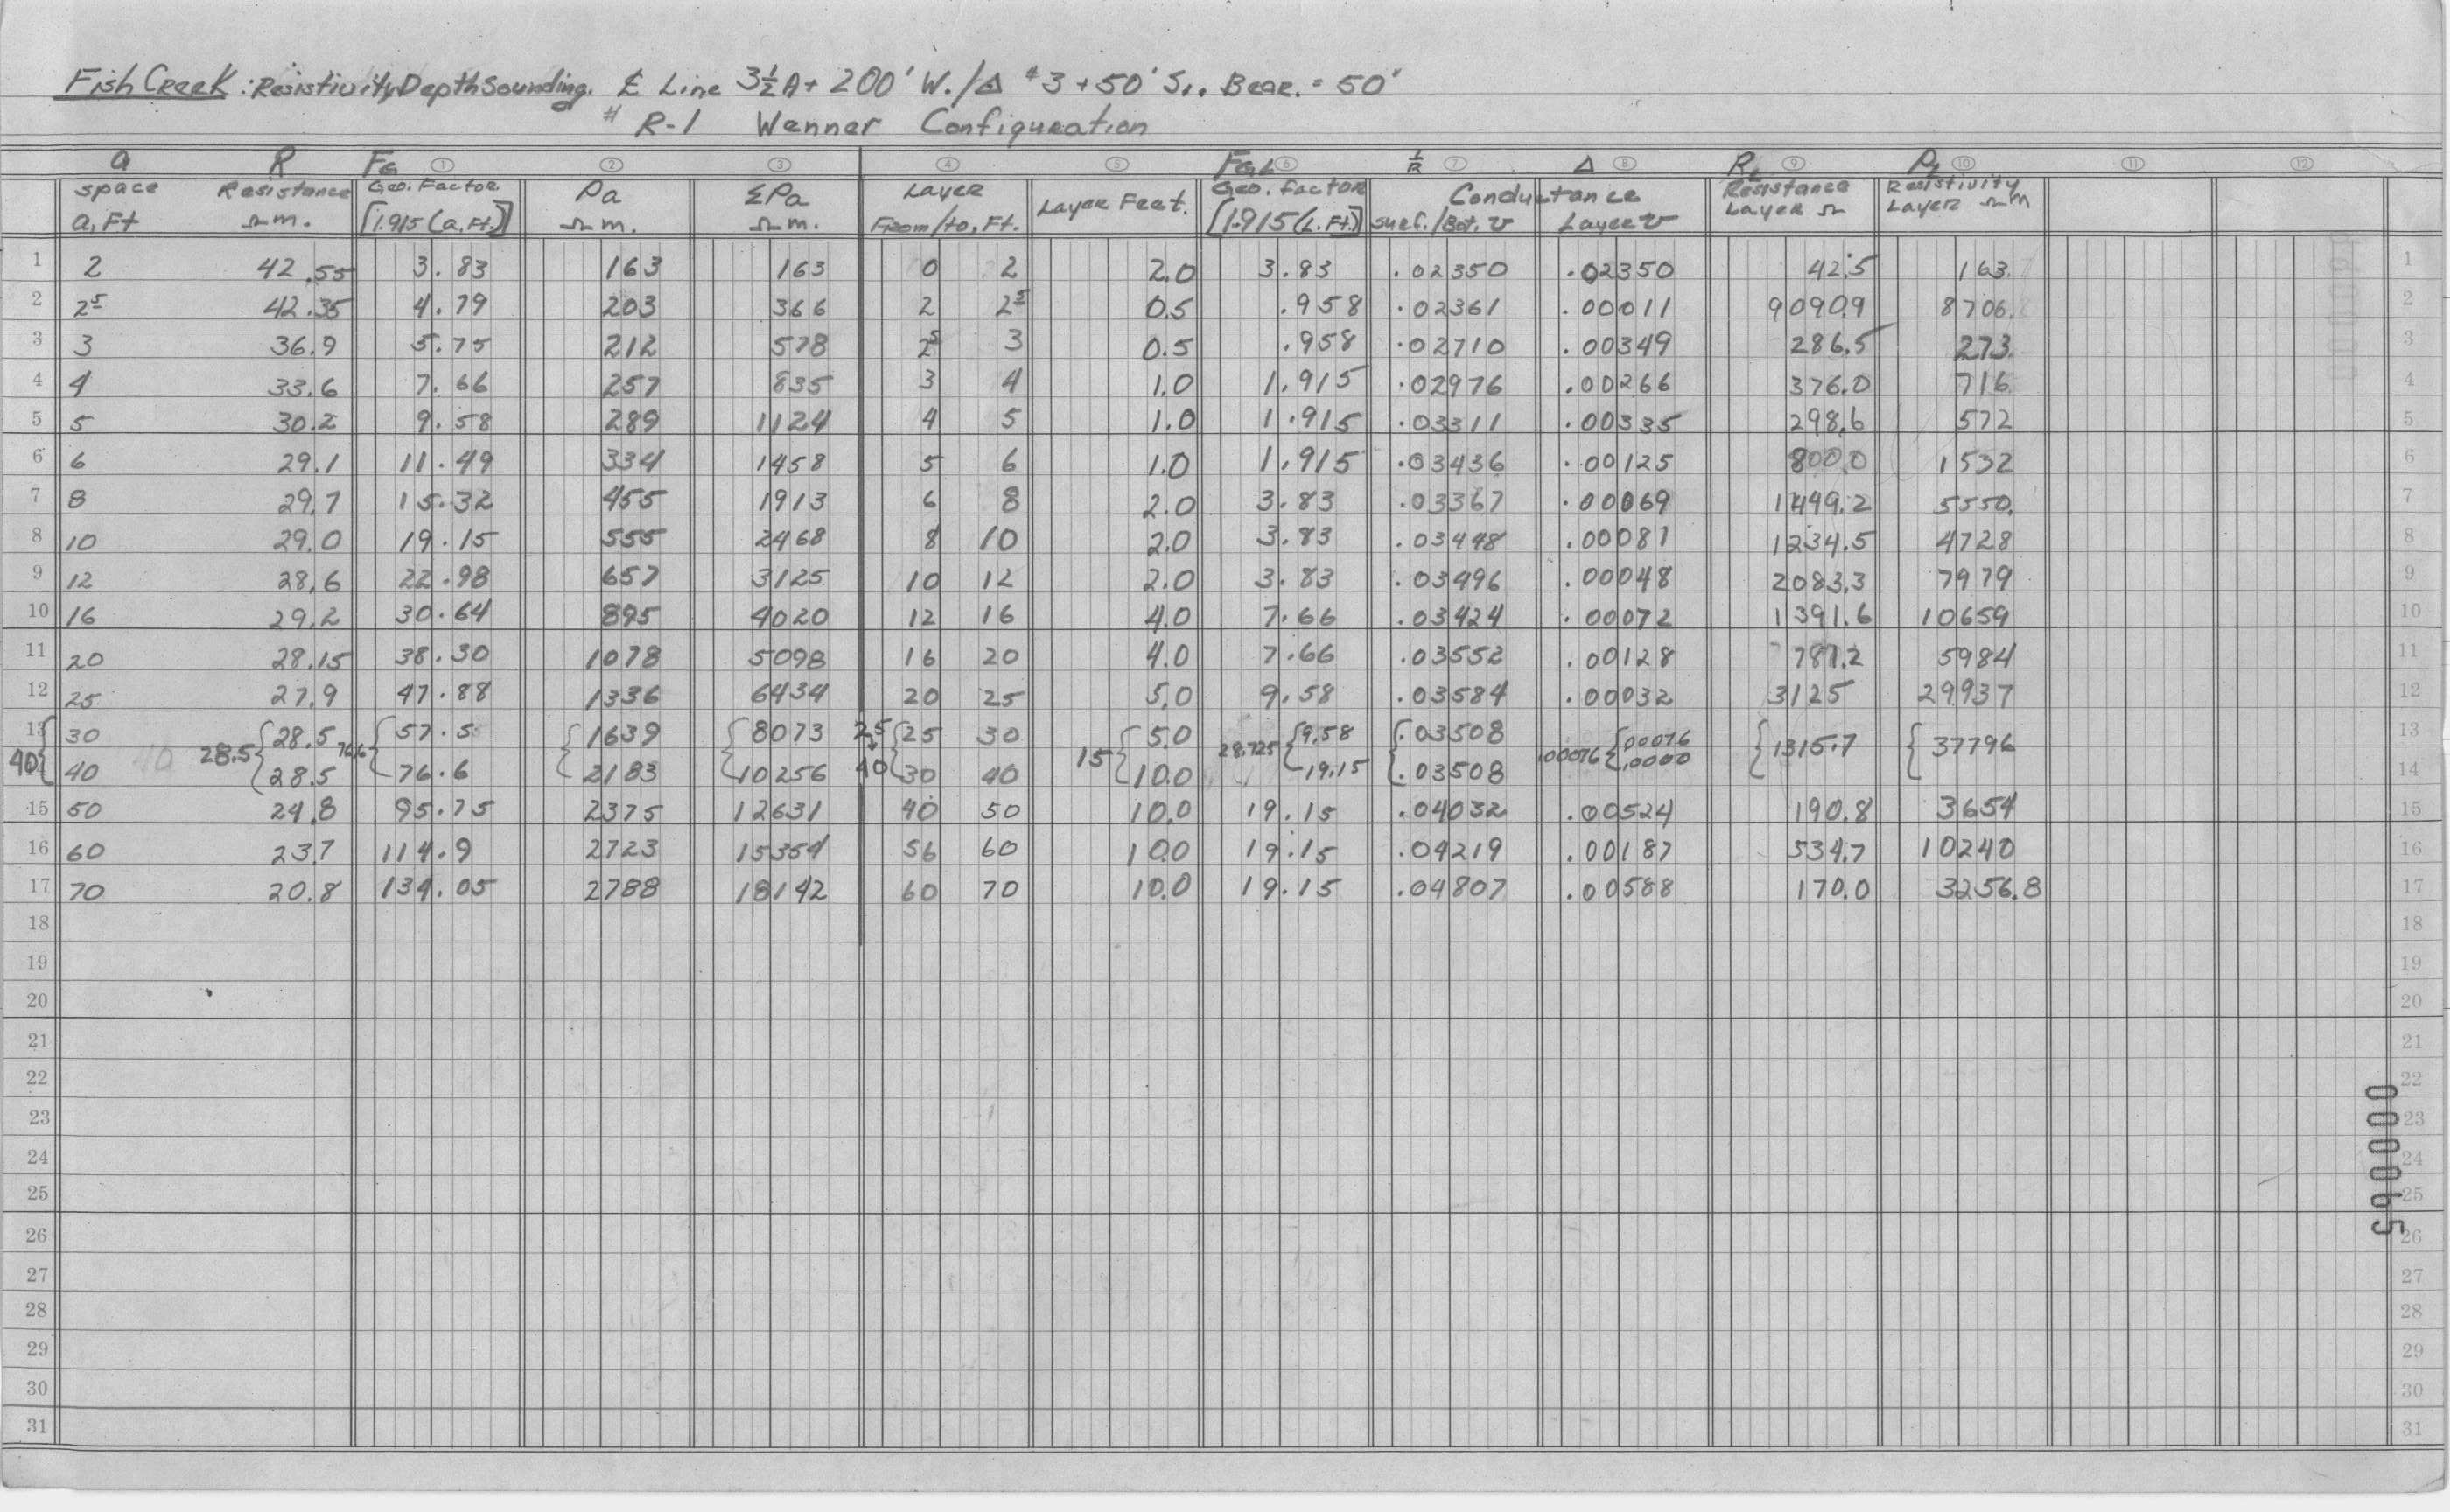 Fish Creek : Resistivity Depth Sounding. ℄ Line 3½A + 200' W. / Δ #3 + 50' S,. Bear. = 50°
# R-1 Wenner Configuration
a R FG ① ② ③ ④ ⑤ FGL ⑥ 1/R ⑦ Δ ⑧ RL ⑨ ρL ⑩ ⑪ ⑫
space Resistance Geo. Factor ρa Σρa Layer Layer Feet. Geo. factor Conductance Resistance Resistivity
a, Ft Ωm. [1.915 (a, Ft.)] Ωm. Ωm. From/to, Ft. [1.915 (L. Ft.)] surf./Bot. ℧ Layer ℧ Layer Ω Layer Ωm
1 2 42.55 3.83 163 163 0 2 2.0 3.83 .02350 .02350 42.5 163. 1
2 2⁵ 42.35 4.79 203 366 2 2⁵ 0.5 .958 .02361 .00011 9090.9 8706. 2
3 3 36.9 5.75 212 578 2⁵ 3 0.5 .958 .02710 .00349 286.5 273. 3
4 4 33.6 7.66 257 835 3 4 1.0 1.915 .02976 .00266 376.0 716. 4
5 5 30.2 9.58 289 1124 4 5 1.0 1.915 .03311 .00335 298.6 572 5
6 6 29.1 11.49 334 1458 5 6 1.0 1.915 .03436 .00125 800.0 1532 6
7 8 29.7 15.32 455 1913 6 8 2.0 3.83 .03367 .00069 1449.2 5550. 7
8 10 29.0 19.15 555 2468 8 10 2.0 3.83 .03448 .00081 1234.5 4728 8
9 12 28.6 22.98 657 3125 10 12 2.0 3.83 .03496 .00048 2083.3 7979 9
10 16 29.2 30.64 895 4020 12 16 4.0 7.66 .03424 .00072 1391.6 10659 10
11 20 28.15 38.30 1078 5098 16 20 4.0 7.66 .03552 .00128 781.2 5984 11
12 25 27.9 47.88 1336 6434 20 25 5.0 9.58 .03584 .00032 3125 29937 12
13 30 28.5 57.5 1639 8073 25 25 30 5.0 9.58 .03508 .00076 13
40 40 28.5 76.6 15 28.725 .00076 1315.7 37796
40 28.5 76.6 2183 10256 40 30 40 10.0 19.15 .03508 .0000 14
15 50 24.8 95.75 2375 12631 40 50 10.0 19.15 .04032 .00524 190.8 3654 15
16 60 23.7 114.9 2723 15354 56 60 10.0 19.15 .04219 .00187 534.7 10240 16
17 70 20.8 134.05 2788 18142 60 70 10.0 19.15 .04807 .00588 170.0 3256.8 17
18 18
19 19
20 20
21 21
22 22
23 23
24 24
25 25
26 26
27 27
28 28
29 29
30 30
31 31
000065